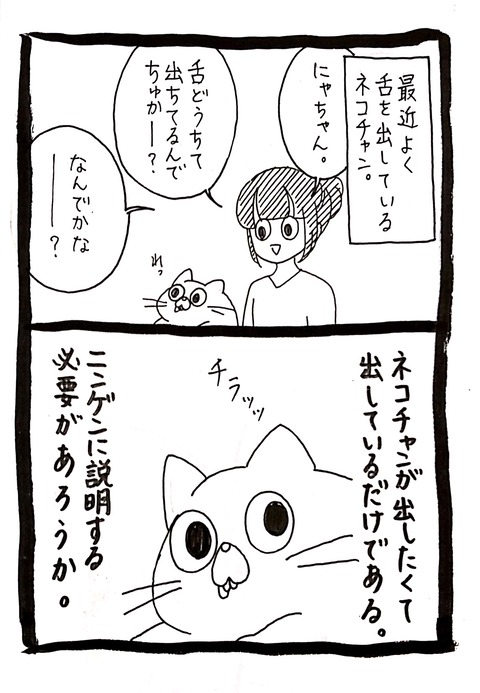 最近よく
舌を出している
ネコチャン。
にゃちゃん。
舌どうちて
出ちてるんで
ちゅかー?
なんでかな
ー?
れっ
ネコチャンが出したくて
出しているだけである。
チラッッ
ニンゲンに説明する
必要があろうか。